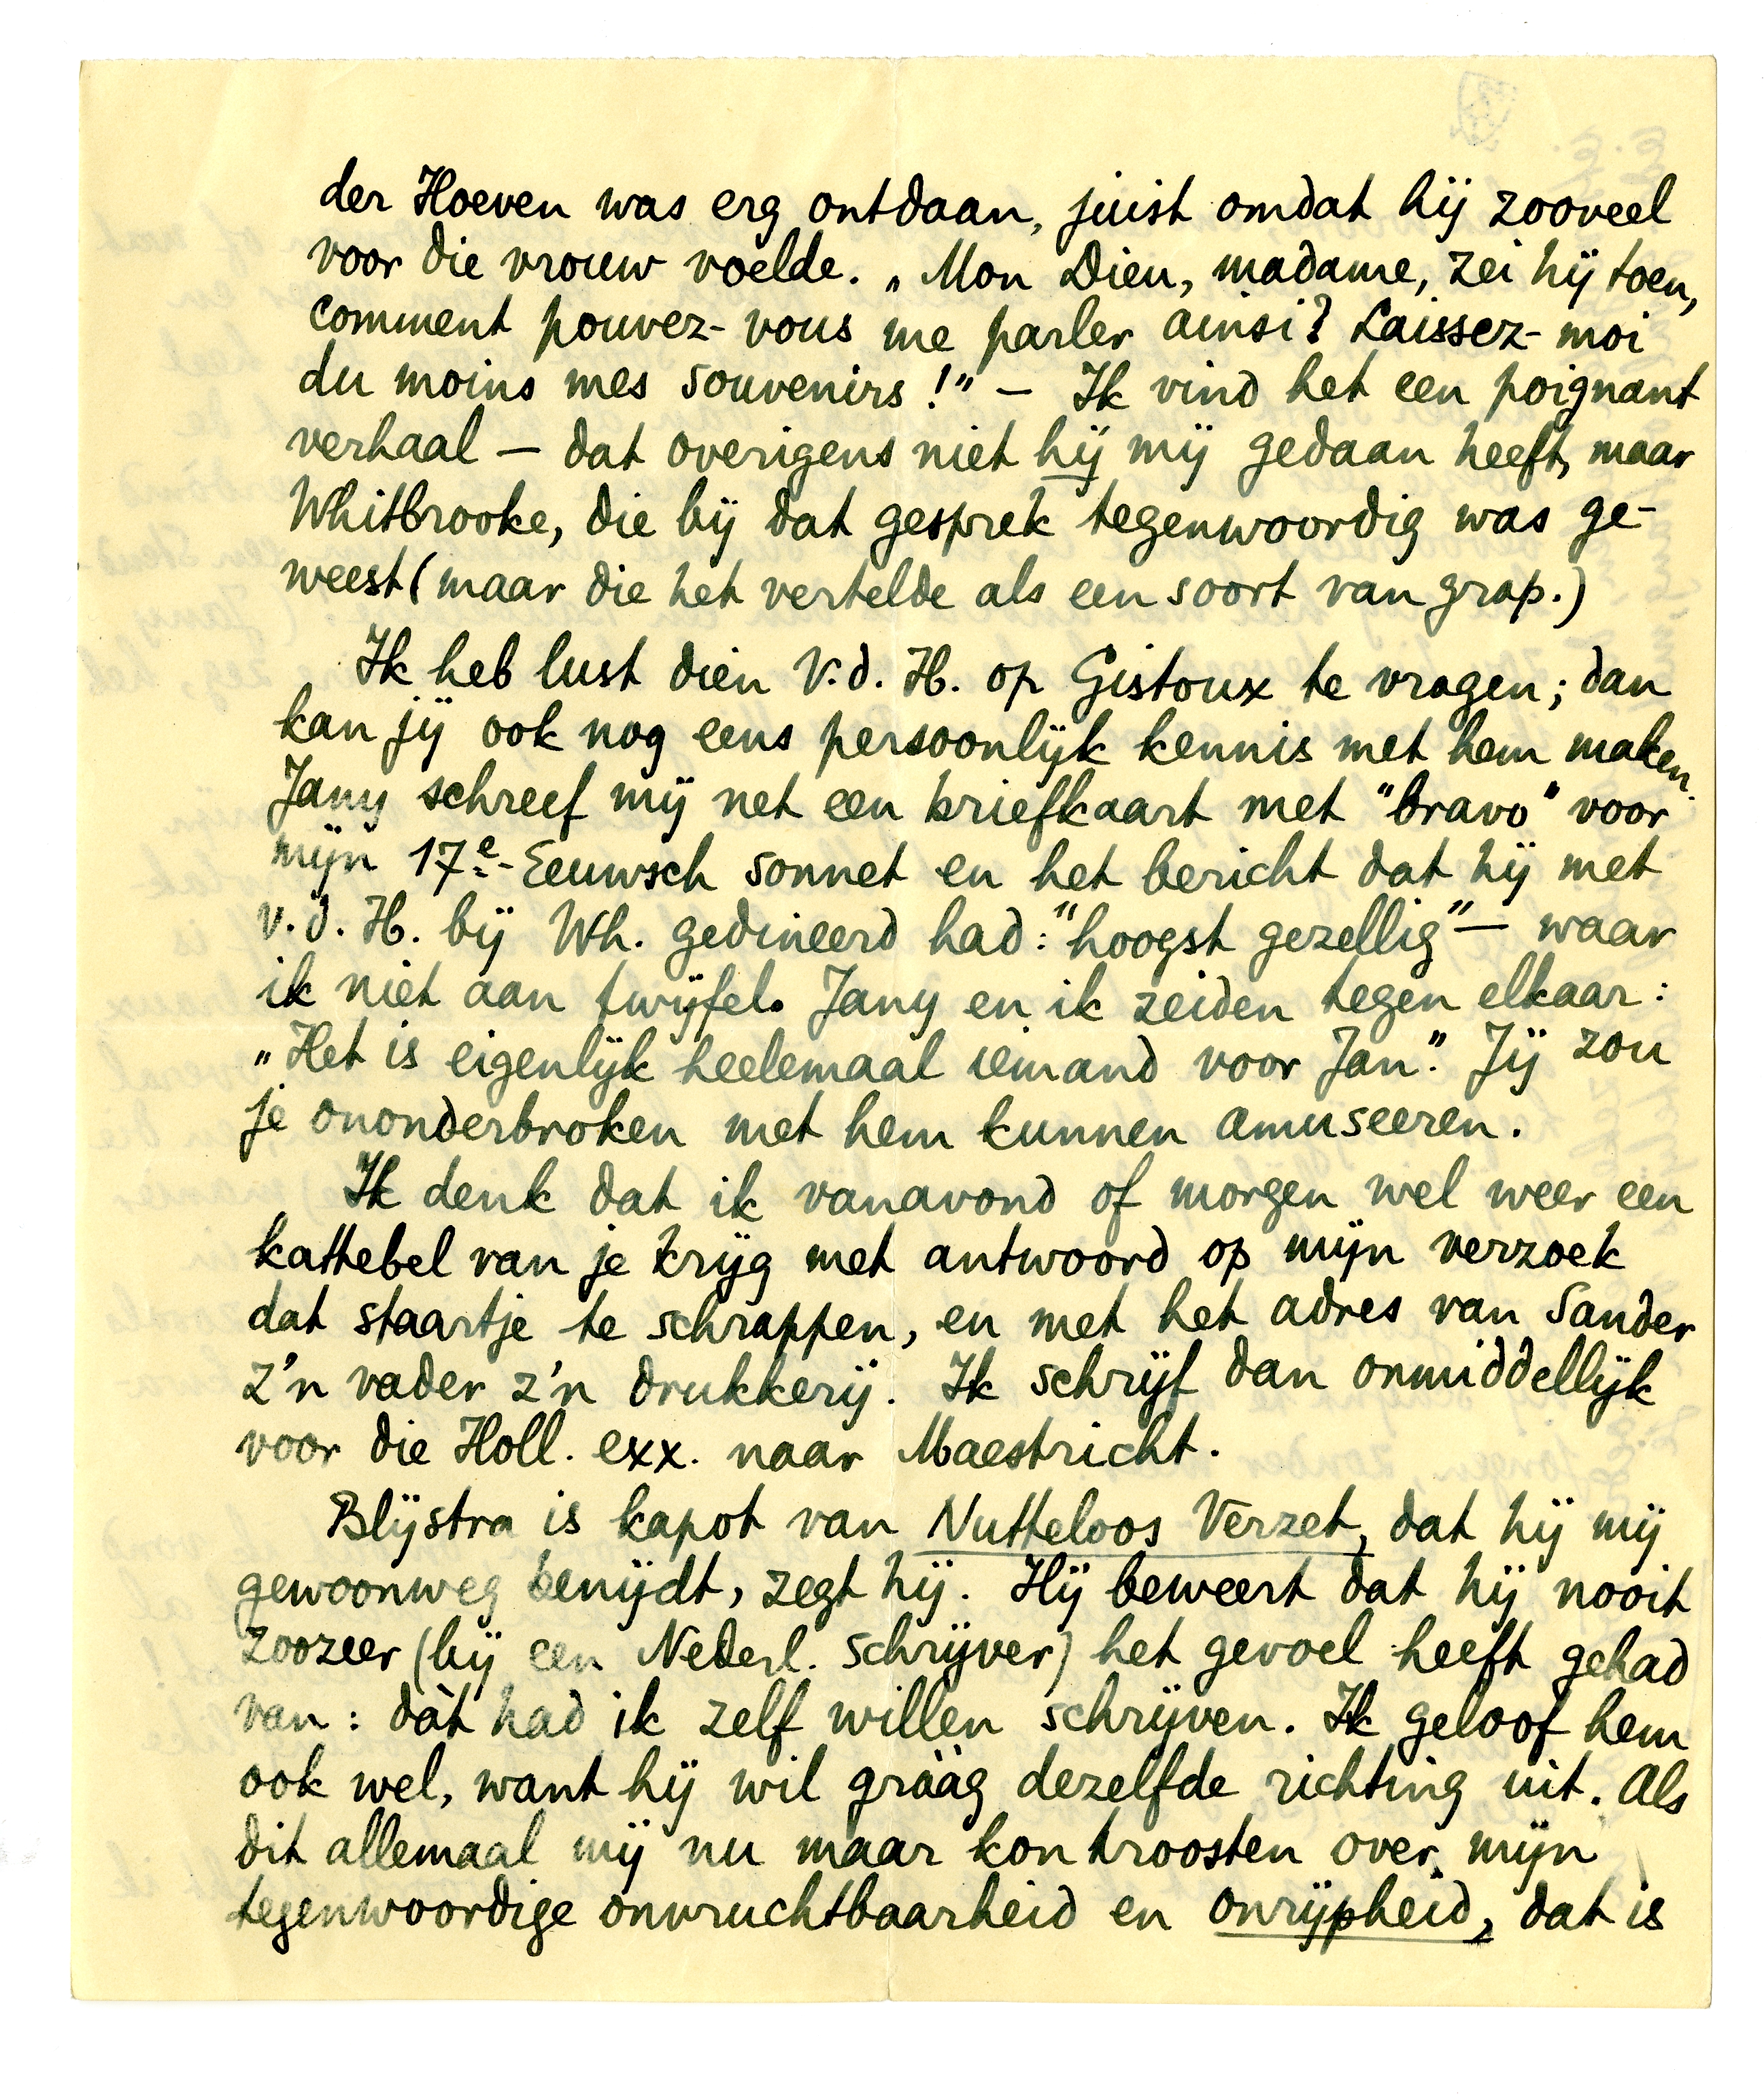 der Hoeven was erg ontdaan, juist omdat hij zooveel
voor die vrouw voelde. „Mon Dieu, madame, zei hij toen,
comment pouvez-vous me parler ainsi? Laissez-moi
du moins mes souvenirs!” – Ik vind het een poignant
verhaal – dat overigens niet hij mij gedaan heeft, maar
Whitbrooke, die bij dat gesprek tegenwoordig was ge-
weest (maar die het vertelde als een soort van grap.)
Ik heb lust dien V.d. H. op Gistoux te vragen; dan
kan jij ook nog eens persoonlijk kennis met hem maken.
Jany schreef mij net een briefkaart met "bravo" voor
mijn 17e-Eeuwsch sonnet en het bericht dat hij met
v.d. H. bij Wh. gedineerd had: "hoogst gezellig" – waar
ik niet aan twijfel. Jany en ik zeiden tegen elkaar:
„Het is eigenlijk heelemaal iemand voor Jan.” Jij zou
je ononderbroken met hem kunnen amuseeren.
Ik denk dat ik vanavond of morgen wel weer een
kattebel van je krijg met antwoord op mijn verzoek
dat staartje te schrappen, en met het adres van Sander
z'n vader z'n drukkerij. Ik schrijf dan onmiddellijk
voor die Holl. exx. naar Maestricht.
Blijstra is kapot van Nutteloos Verzet, dat hij mij
gewoonweg benijdt, zegt hij. Hij beweert dat hij nooit
zoozeer (bij een Nederl. schrijver) het gevoel heeft gehad
van: dàt had ik zelf willen schrijven. Ik geloof hem
ook wel, want hij wil gràag dezelfde richting uit. Als
dit allemaal mij nu maar kon troosten over mijn
tegenwoordige onvruchtbaarheid en onrijpheid, dat is